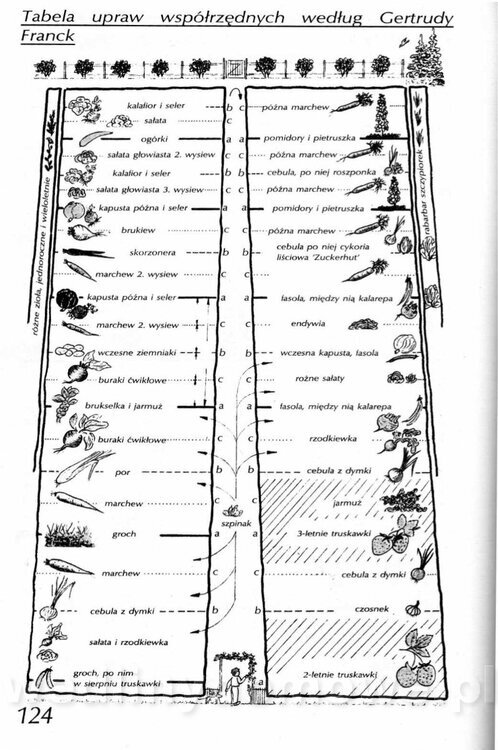 Tabela upraw współrzędnych według Gertrudy
Franck
różne zioła, jednoroczne i wieloletnie
rabarbar szczypiorek
kalafior i seler b c późna marchew
sałata c
ogórki a a pomidory i pietruszka
sałata głowiasta 2. wysiew c c późna marchew
kalafior i seler b b cebula, po niej roszponka
sałata głowiasta 3. wysiew c c późna marchew
kapusta późna i seler a a pomidory i pietruszka
brukiew c c późna marchew
skorzonera b b cebula po niej cykoria
liściowa 'Zuckerhut'
marchew 2. wysiew c c
kapusta późna i seler a a fasola, między nią kalarepa
marchew 2. wysiew c c endywia
wczesne ziemniaki b b wczesna kapusta, fasola
buraki ćwikłowe c c rożne sałaty
brukselka i jarmuż a a fasola, między nią kalarepa
buraki ćwikłowe c c rzodkiewka
por b b cebula z dymki
marchew c c jarmuż
szpinak
groch a a 3-letnie truskawki
marchew c c cebula z dymki
cebula z dymki b b czosnek
sałata i rzodkiewka
groch, po nim
w sierpniu truskawki a 2-letnie truskawki
124